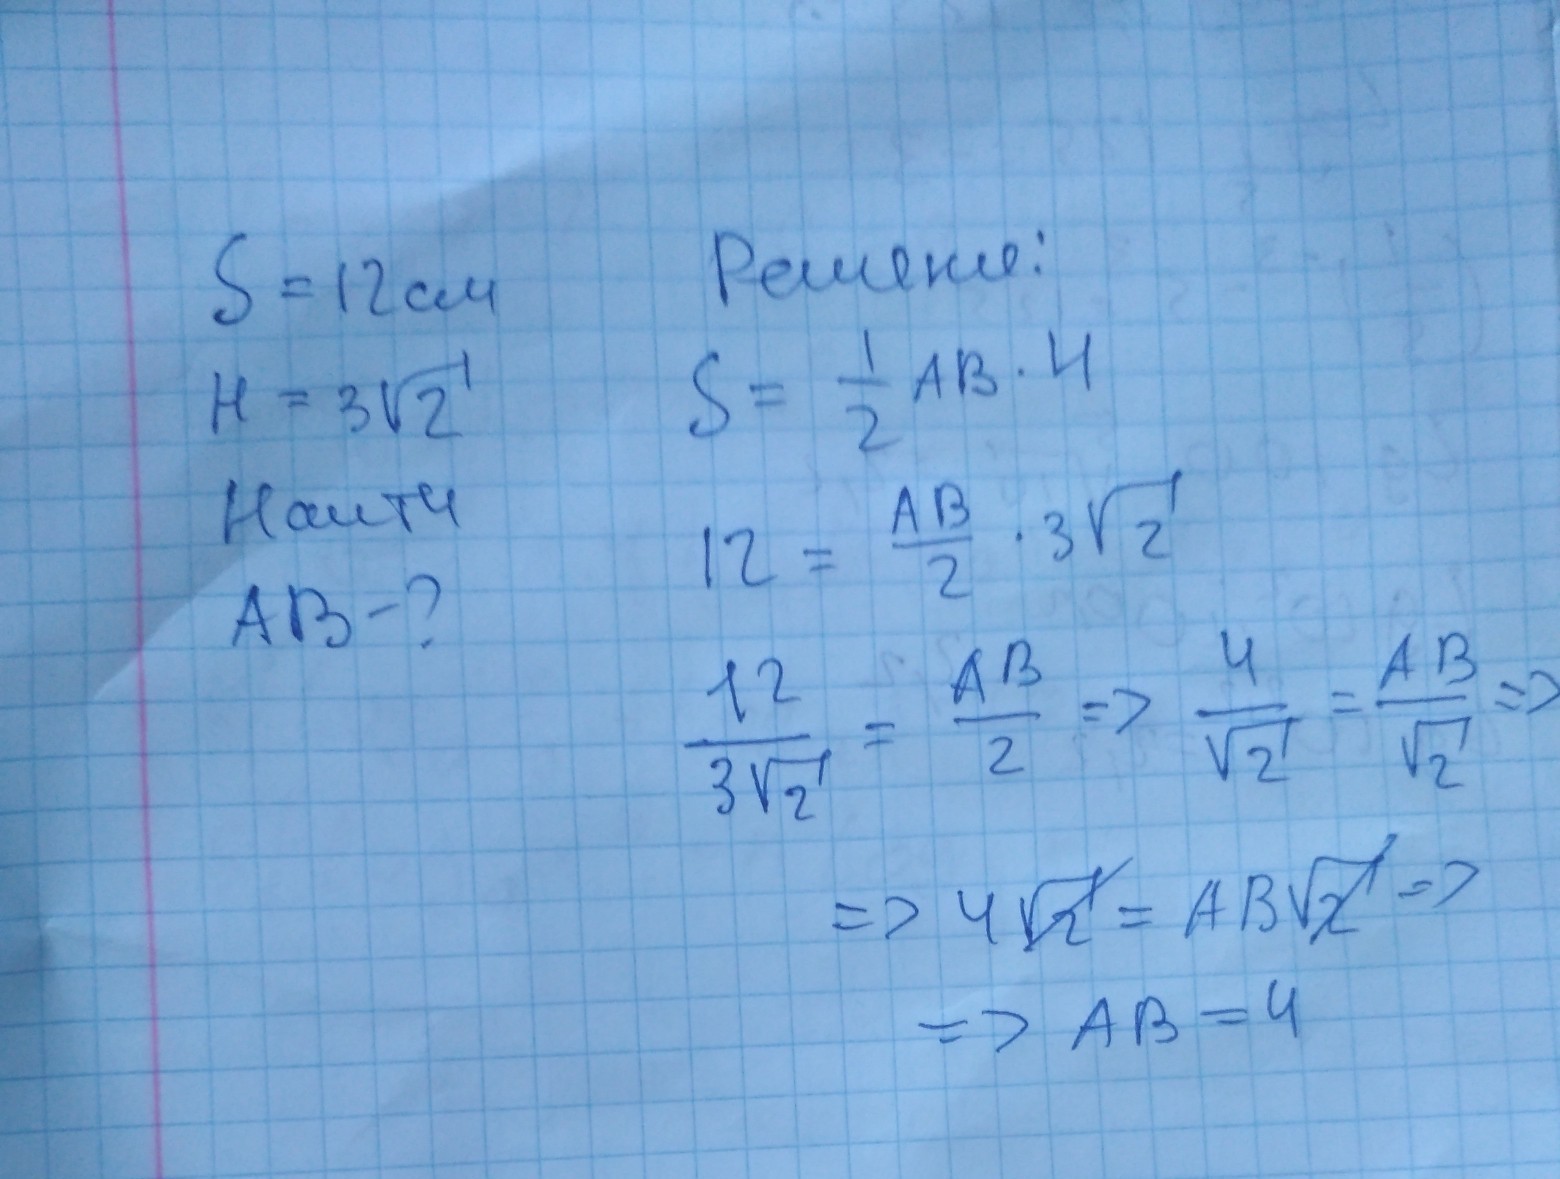 S = 12 см
H = 3√2
Найти
AB - ?
Решение:
S = 1/2 AB · H
12 = AB/2 · 3√2
12/3√2 = AB/2 => 4/√2 = AB/√2 =>
=> 4√2 = AB√2 =>
=> AB = 4